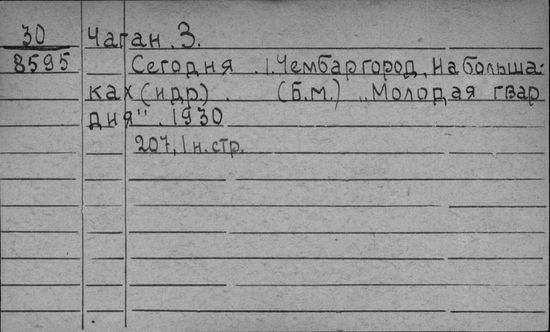 30 Чаган. З.
8595 Сегодня. I. Чембаргород, на больша-
ках (и др). (б.м.) „Молодая гвар
дия". 1930
207, 1 н. стр.